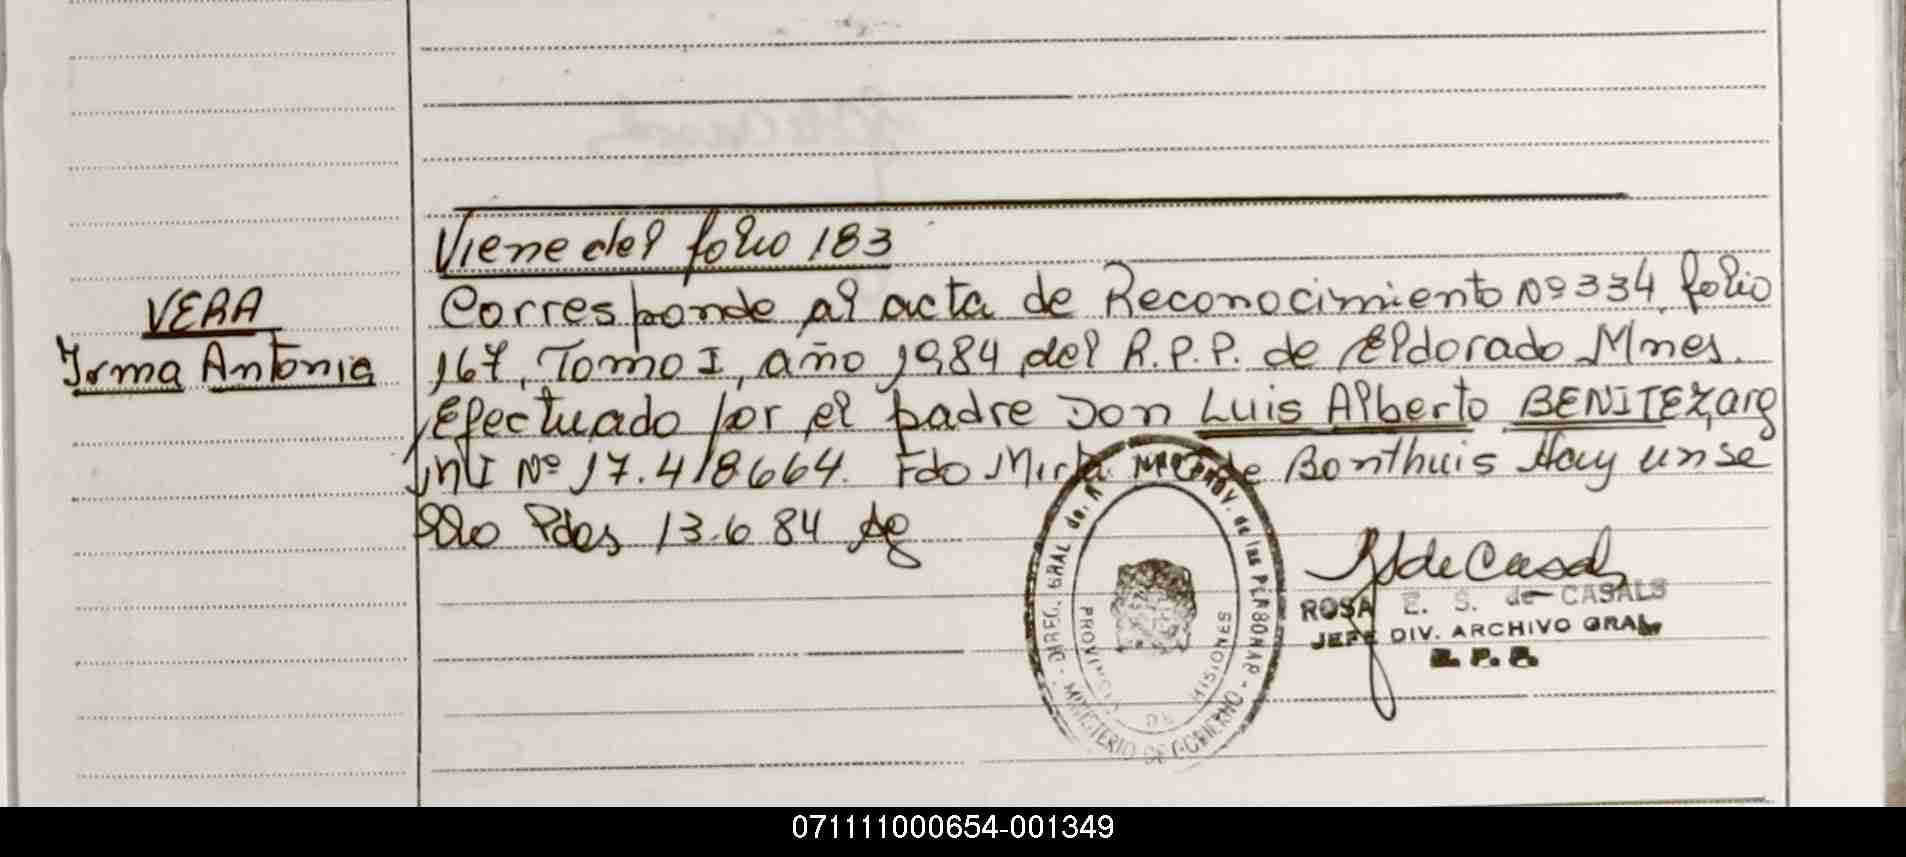 Viene del folio 183
VERA
Irma Antonia
Corresponde al acta de Reconocimiento Nº 334, folio
167, Tomo I, año 1984 del R.P.P. de Eldorado Mnes.
Efectuado por el padre Don Luis Alberto BENITEZ, arg
Nº 17.418664. Fdo Mirta de Bonthuis Hay un se
llo Pdas 13.6 84
DIREC. GRAL de PROV. de las PERSONAS
PROVINCIA DE MISIONES
MINISTERIO DE GOBIERNO
de Casals
ROSA E. S. de CASALS
JEFE DIV. ARCHIVO GRAL
R. P. P.
071111000654-001349